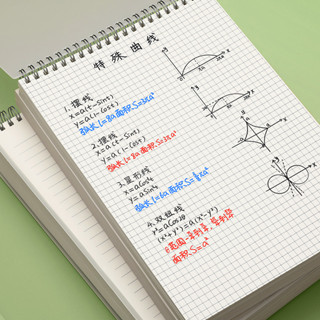 特殊曲线
1.摆线
x=a(t-sint)
y=a(1-cost)
弧长l=8a面积:S=3πa²
2.摆线
x=a(t-sint)
y=a(1-cost)
弧长l=8a面积:S=3πa²
3.星形线
x=acos³t
y=asin³t
弧长l=6a面积:S=
4.双纽线
(x²+y²)=a(x²-y²)
面积S=a²